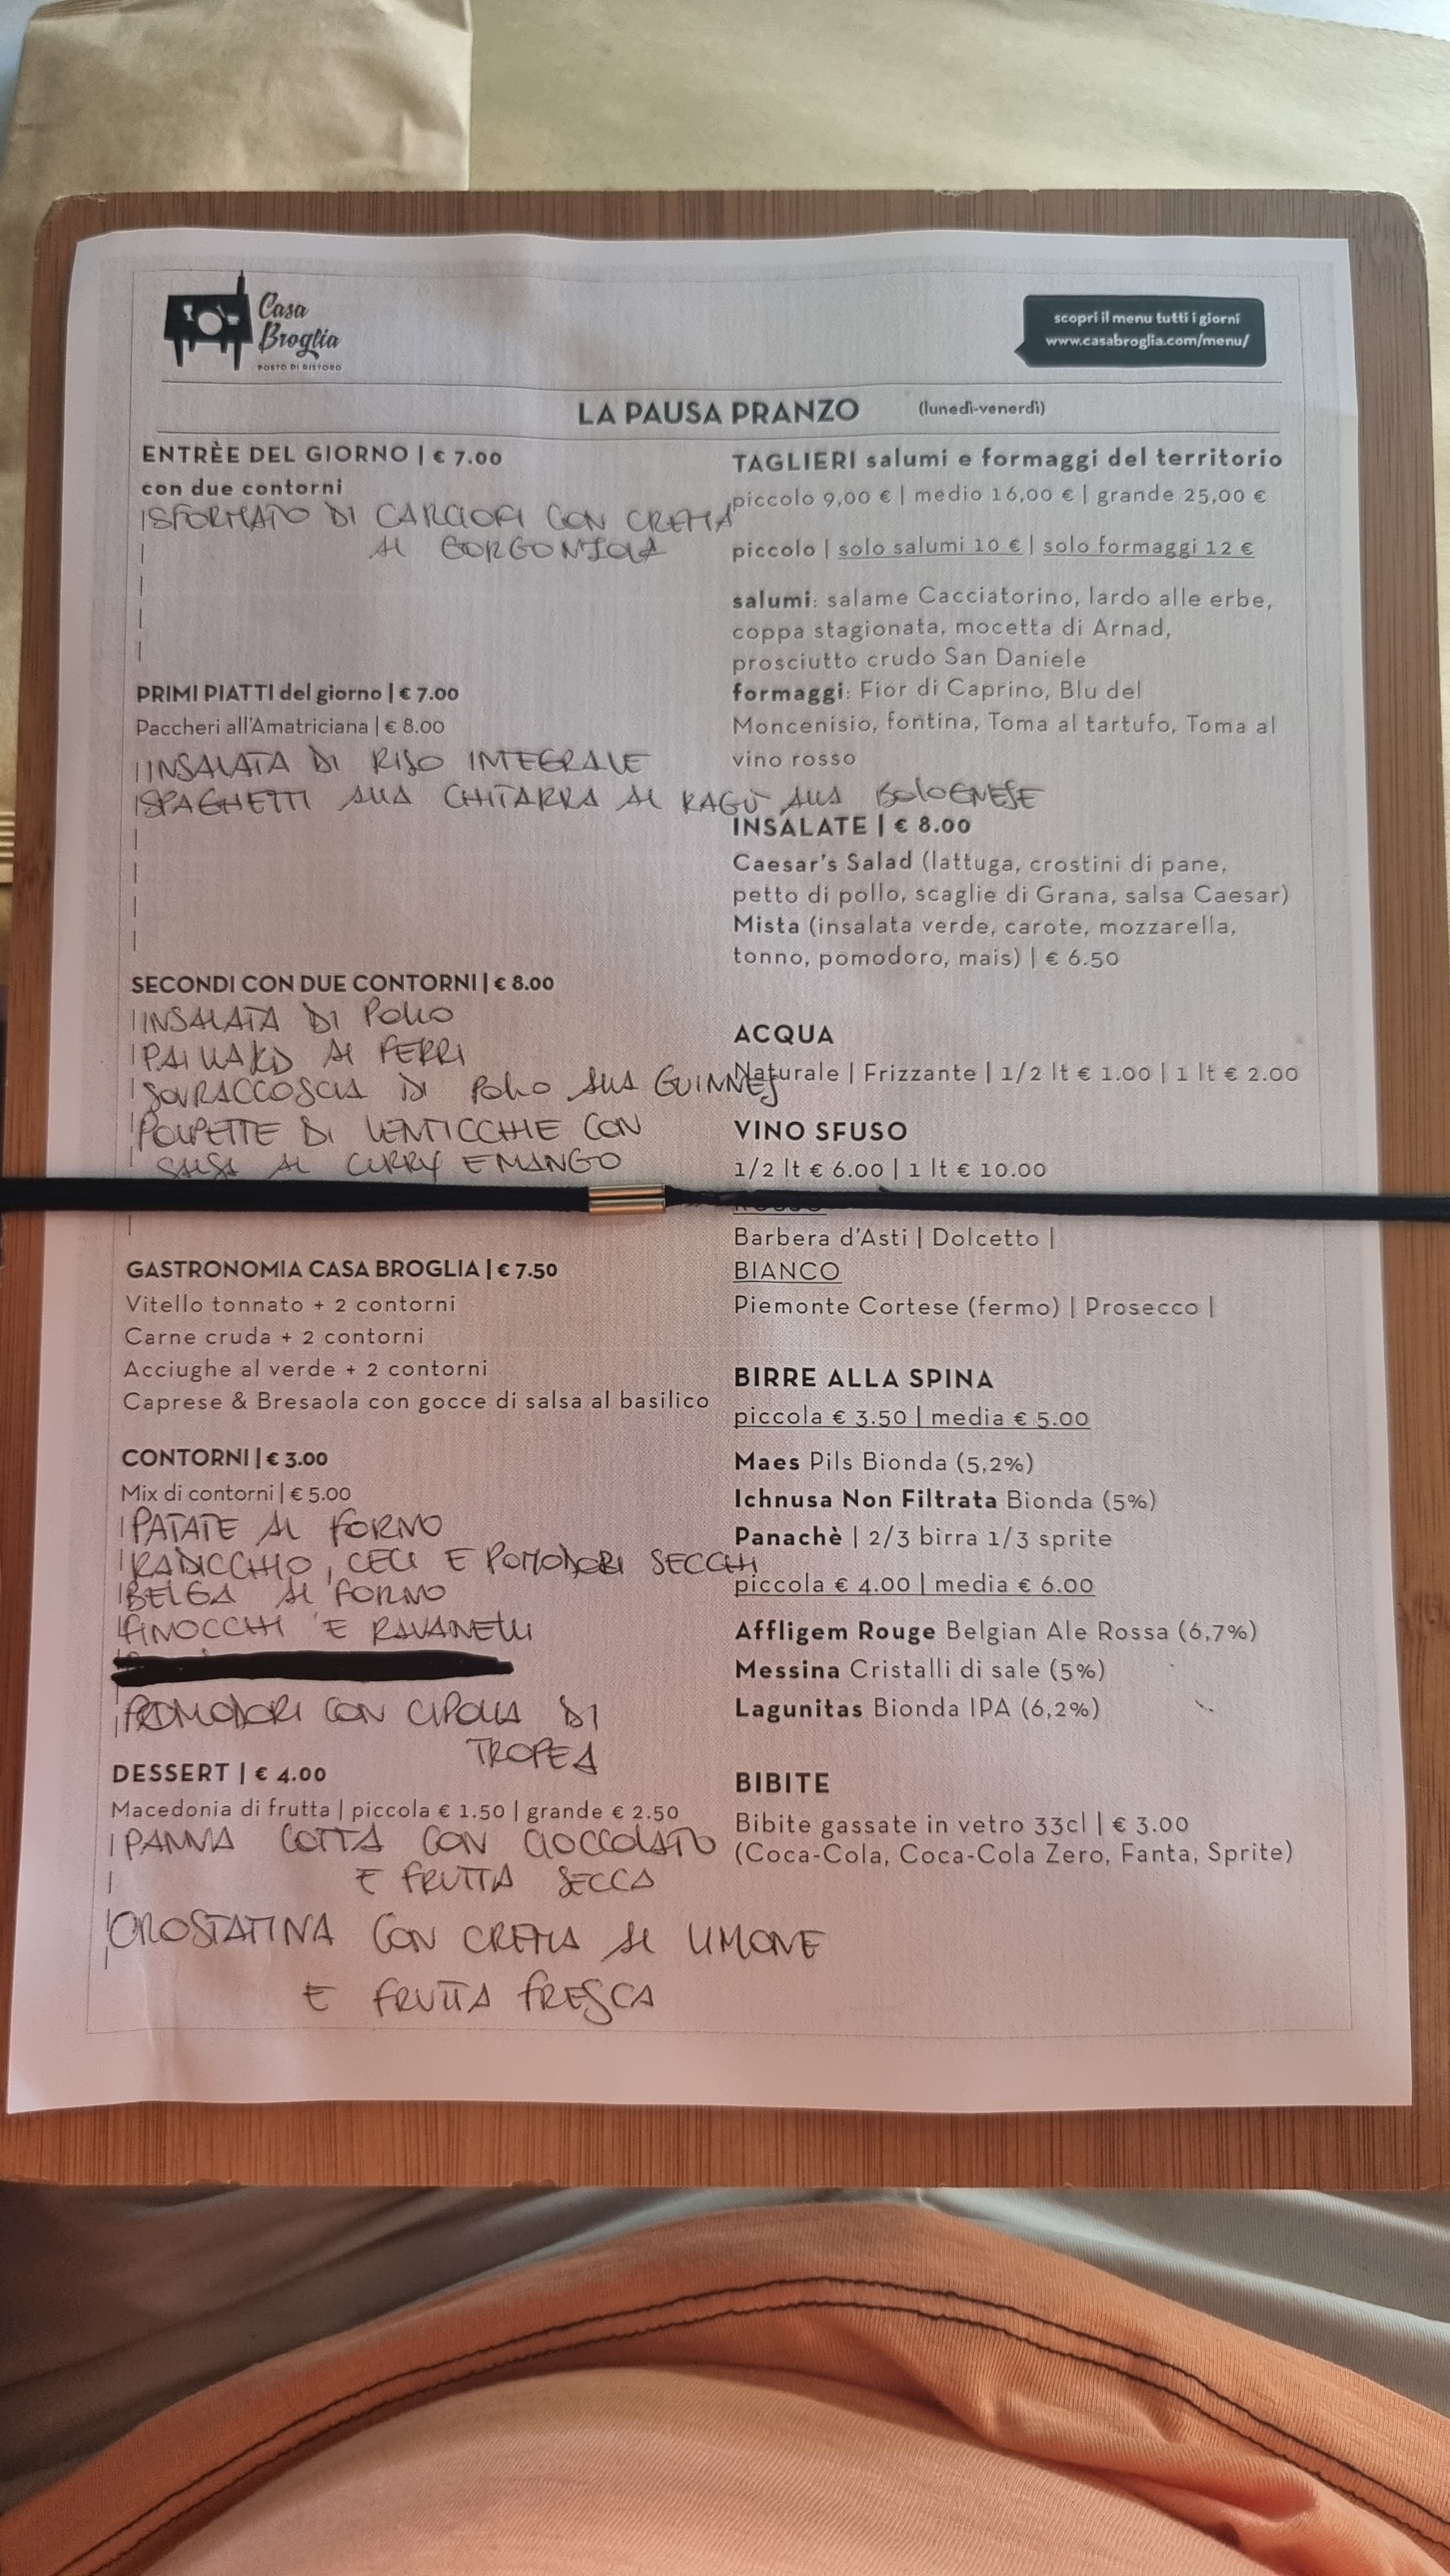 Casa
Broglia
POSTO DI RISTORO
scopri il menu tutti i giorni
www.casabroglia.com/menu/
LA PAUSA PRANZO (lunedì-venerdì)
ENTRÈE DEL GIORNO | € 7.00
con due contorni
SFORMATO DI CARCIOFI CON CREMA
AL GORGONZOLA
PRIMI PIATTI del giorno | € 7.00
Paccheri all'Amatriciana | € 8.00
INSALATA DI RISO INTEGRALE
SPAGHETTI ALLA CHITARRA AL RAGÙ ALLA BOLOGNESE
SECONDI CON DUE CONTORNI | € 8.00
INSALATA DI POLLO
PAILLARD AI FERRI
SOVRACCOSCIA DI POLLO ALLA GUINNES
POLPETTE DI LENTICCHIE CON
SALSA AL CURRY E MANGO
GASTRONOMIA CASA BROGLIA | € 7.50
Vitello tonnato + 2 contorni
Carne cruda + 2 contorni
Acciughe al verde + 2 contorni
Caprese & Bresaola con gocce di salsa al basilico
CONTORNI | € 3.00
Mix di contorni | € 5.00
PATATE AL FORNO
RADICCHIO, CECI E POMODORI SECCHI
BELGA AL FORNO
FINOCCHI E RAVANELLI
POMODORI CON CIPOLLA DI
TROPEA
DESSERT | € 4.00
Macedonia di frutta | piccola € 1.50 | grande € 2.50
PANNA COTTA CON CIOCCOLATO
E FRUTTA SECCA
CROSTATINA CON CREMA AL LIMONE
E FRUTTA FRESCA
TAGLIERI salumi e formaggi del territorio
piccolo 9,00 € | medio 16,00 € | grande 25,00 €
piccolo | solo salumi 10 € | solo formaggi 12 €
salumi: salame Cacciatorino, lardo alle erbe,
coppa stagionata, mocetta di Arnad,
prosciutto crudo San Daniele
formaggi: Fior di Caprino, Blu del
Moncenisio, fontina, Toma al tartufo, Toma al
vino rosso
INSALATE | € 8.00
Caesar's Salad (lattuga, crostini di pane,
petto di pollo, scaglie di Grana, salsa Caesar)
Mista (insalata verde, carote, mozzarella,
tonno, pomodoro, mais) | € 6.50
ACQUA
Naturale | Frizzante | 1/2 lt € 1.00 | 1 lt € 2.00
VINO SFUSO
1/2 lt € 6.00 | 1 lt € 10.00
Barbera d'Asti | Dolcetto |
BIANCO
Piemonte Cortese (fermo) | Prosecco |
BIRRE ALLA SPINA
piccola € 3.50 | media € 5.00
Maes Pils Bionda (5,2%)
Ichnusa Non Filtrata Bionda (5%)
Panachè | 2/3 birra 1/3 sprite
piccola € 4.00 | media € 6.00
Affligem Rouge Belgian Ale Rossa (6,7%)
Messina Cristalli di sale (5%)
Lagunitas Bionda IPA (6,2%)
BIBITE
Bibite gassate in vetro 33cl | € 3.00
(Coca-Cola, Coca-Cola Zero, Fanta, Sprite)